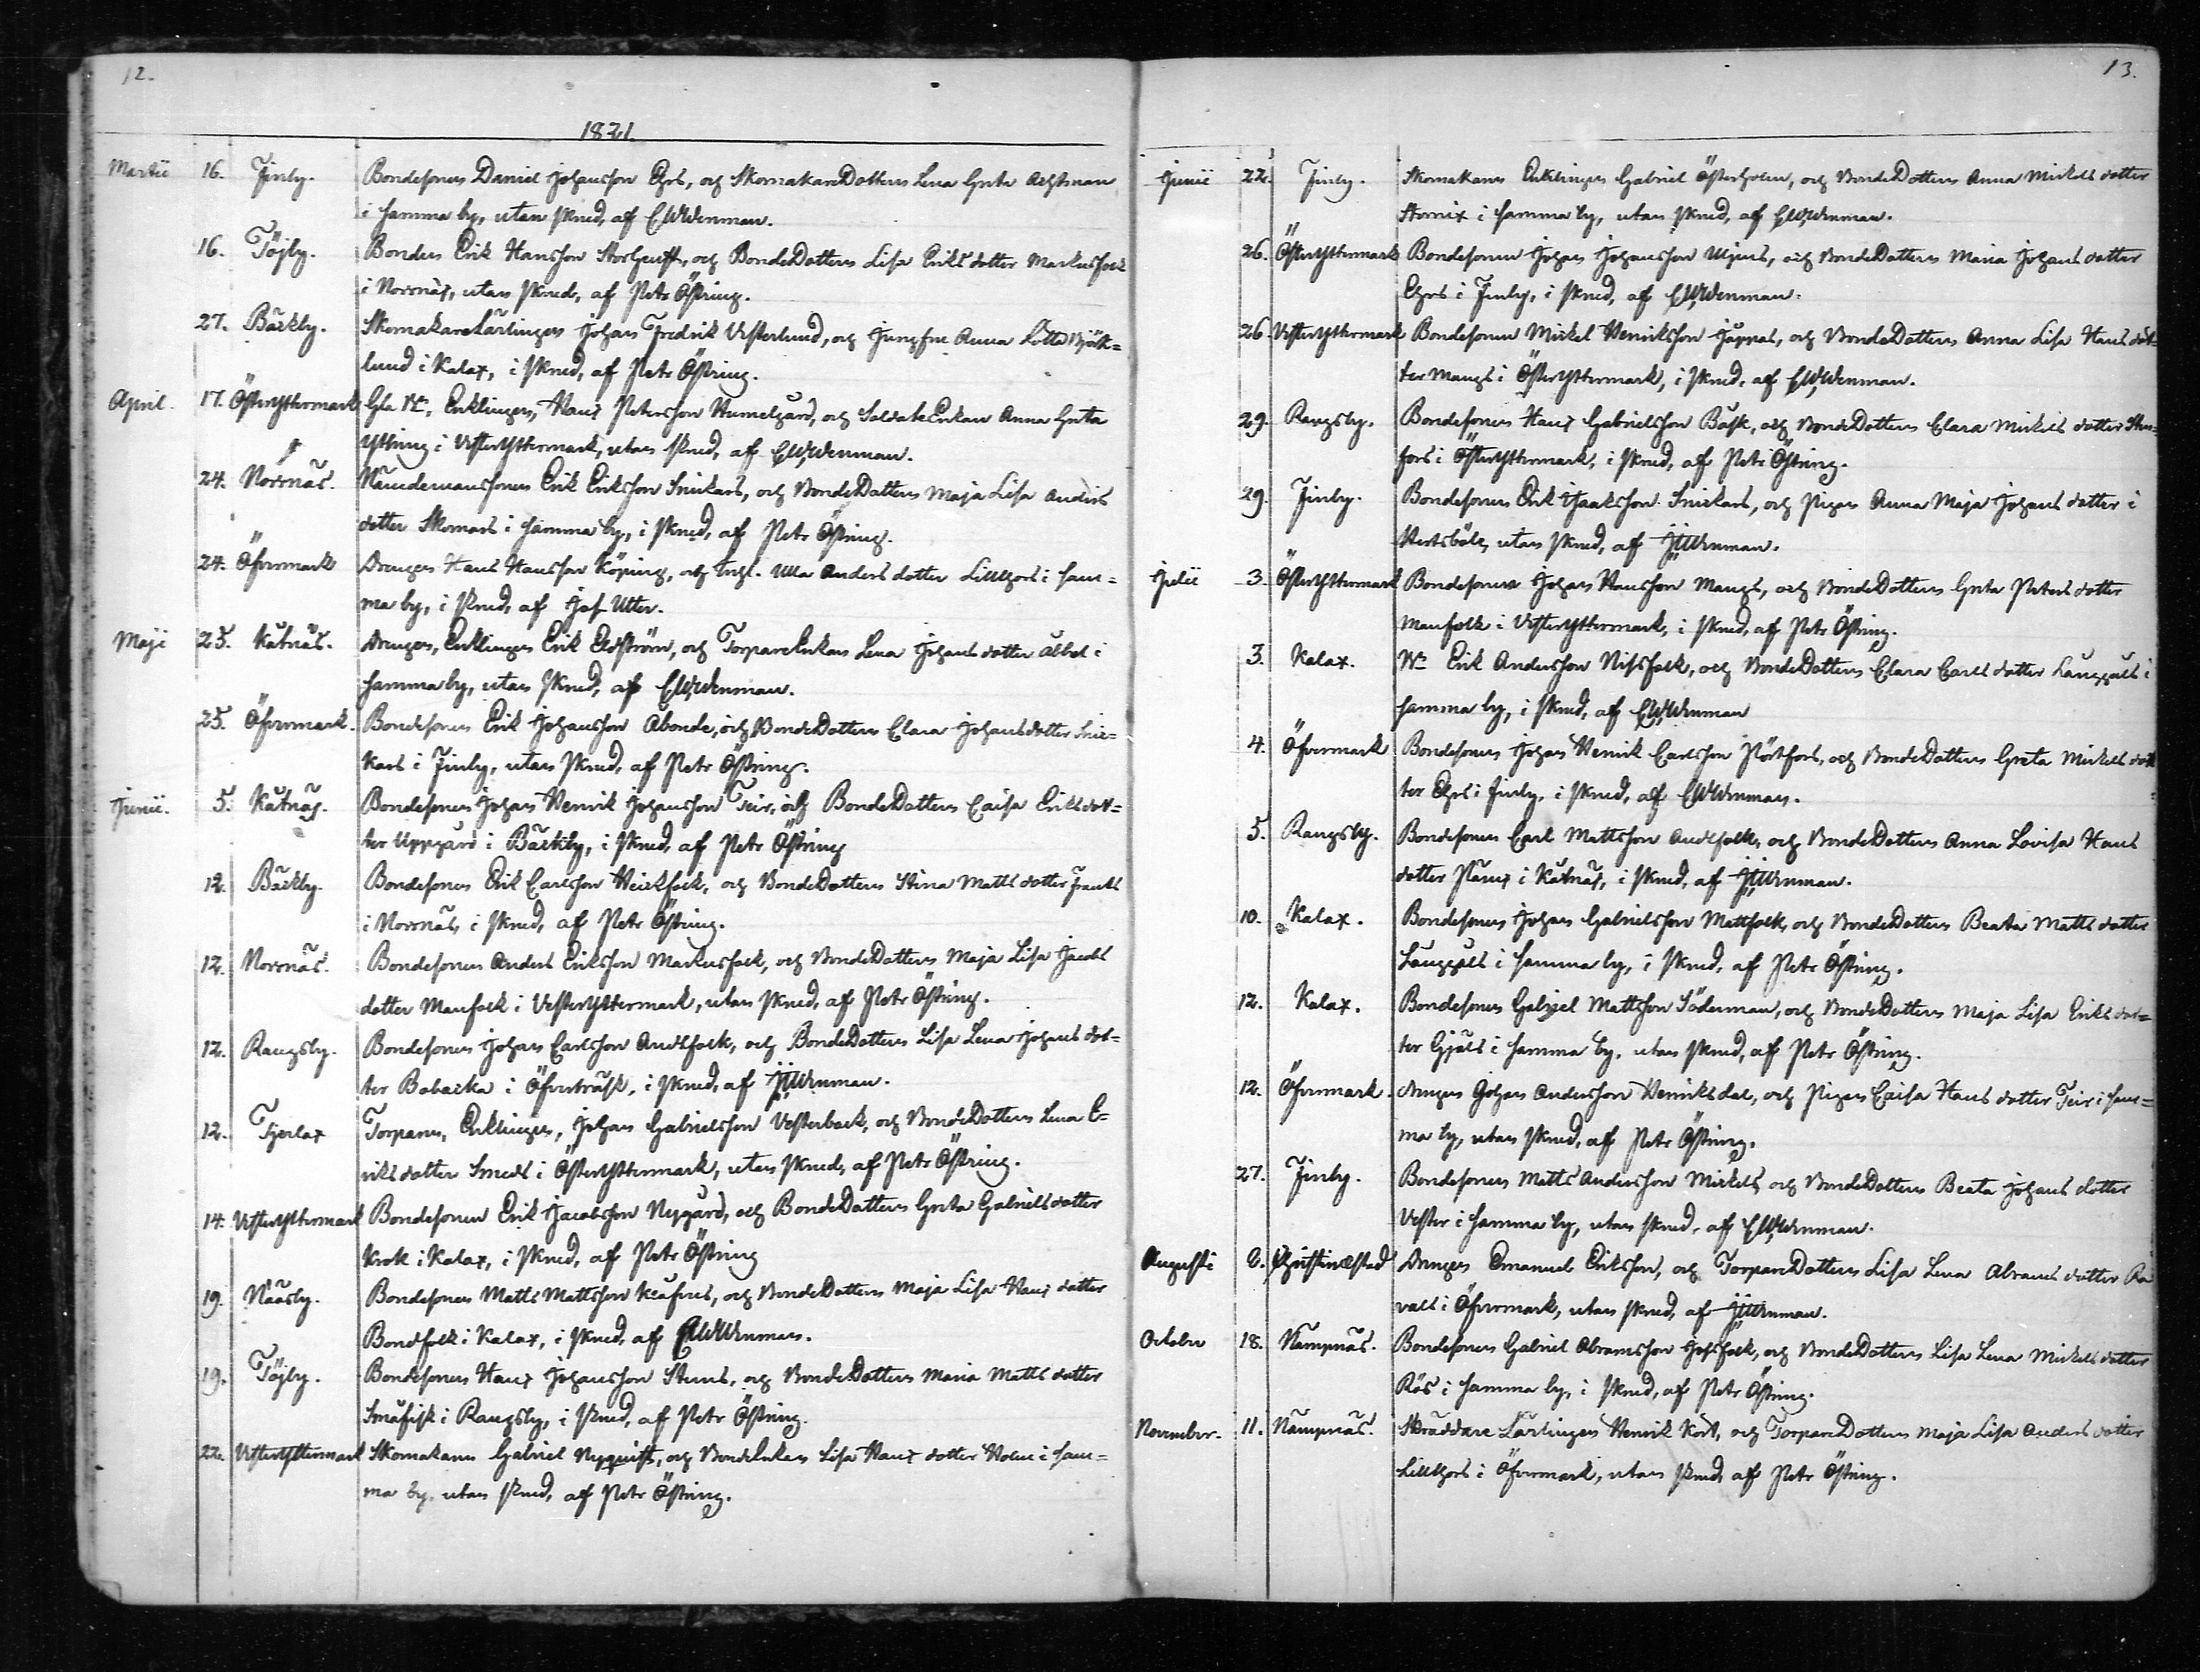 12.
1821.
Martii 16. Finby. Bondesonen Daniel Johansson Ehrs, och SkomakareDottren Lena Greta Achtman
i samma by, utan skrud, af EWWenman.
16. Töjby. Bonden Erik Hansson Storhenst, och BondeDottren Lisa Eriks dotter Markusfolk
i Norrnäs, utan skrud, af Petr Östring.
27. Bäckby. SkomakareLärlingen Johan Fredrik Vesterlund, och Jungfru Anna Lotta Björk=
lund i Kalax, i skrud, af Petr Östring.
April. 17. ÖsterYttermark Gla Nn, Enklingen, Hans Petersson Humelgård, och SoldateEnkan Anna Greta
Yttring i VesterYttermark, utan skrud, af EWWenman.
24. Norrnäs. Nämdemanssonen Erik Eriksson Snickars, och BondeDottren Maja Lisa Anders
dotter Skomars i samma by, i skrud, af Petr Östring.
24. Öfvermark Drengen Hans Hansson Köping, och Inhl. Ulla Anders dotter Lillthors i sam=
ma by, i skrud, af Jos Utter.
Maji 25. Kåtnäs. Drengen, Enklingen Erik Edström, och TorpareEnkan Lena Johans dotter Ålbel i
samma by, utan skrud, af EWWenman.
25. Öfvermark. Bondesonen Erik Johansson Abonde, och BondeDottren Clara Johans dotter Snic=
kars i Finby, utan skrud, af Petr Östring.
Junii. 5. Kåtnäs. Bondesonen Johan Henrik Johansson Teir, och BondeDottren Caisa Eriks dot=
ter Uppgård i Bäckby, i skrud, af Petr Östring
12. Bäckby. Bondesonen Erik Carlsson Heickfolk, och BondeDottren Stina Matts dotter Frants
i Norrnäs, i skrud, af Petr Östring.
12. Norrnäs. Bondesonen Anders Eriksson Markusfolk, och BondeDottren Maja Lisa Jacobs
dotter Manfolk i VesterYttermark, utan skrud, af Petr Östring.
12. Rangsby. Bondesonen Johan Carlsson Andtfolk, och BondeDottren Lisa Lena Johans dot=
ter Bobacka i Öfverträsk, i skrud, af JJWenman.
12. Tjerlax Torparen, Enklingen, Johan Gabrielsson Vesterback, och BondeDottren Lena E=
riks dotter Smeds i ÖsterYttermark, utan skrud, af Petr Östring.
14. VesterYttermark Bondesonen Erik Jacobsson Nygård, och BondeDottren Greta Gabriels dotter
Krok i Kalax, i skrud, af Petr Östring
19. Nääsby. Bondesonen Matts Mattsson Klåfius, och BondeDottren Maja Lisa Hans dotter
Bondfolk i Kalax, i skrud, af EWWenman.
19. Töjby. Bondesonen Hans Johansson Stens, och BondeDottren Maria Matts dotter
Småfisk i Rangsby, i skrud, af Petr Östring.
22. VesterYttermark Skomakaren Gabriel Nyqvist, och BondeEnkan Lisa Hans dotter Holm i sam=
ma by, utan skrud, af Petr Östring.
13.
Junii 22. Finby. Skomakaren Enklingen Gabriel Österholm, och BondeDottren Anna Mickels dotter
Stornix i samma by, utan skrud, af EWWenman.
26. ÖsterYttermark Bondesonen Johan Johansson Uljens, och BondeDottren Maria Johans dotter
Ehrs i Finby, i skrud, af EWWenman.
26 VesterYttermark Bondesonen Mickel Henriksson Jåpnas, och BondeDottren Anna Lisa Hans dot=
ter Mangs i ÖsterYttermark, i skrud, af EWWenman.
29. Rangsby. Bondesonen Hans Gabrielsson Båsk, och BondeDottren Clara Mickels dotter Sten=
fors i ÖsterYttermark, i skrud, af Petr Östring.
29. Finby. Bondesonen Erik Isaksson Snickars, och Pigan Anna Maja Johans dotter i
Hertsböle, utan skrud, af JJWenman.
Julii 3. ÖsterYttermark Bondesonen Johan Hansson Mangs, och BondeDottren Greta Peters dotter
Manfolk i VesterYttermark, i skrud, af Petr Östring.
3. Kalax. Nn Erik Andersson Nissfolk, och BondeDottren Clara Carls dotter Långgåls i
samma by, i skrud, af EWWenman
4. Öfvermark Bondesonen Johan Henrik Carlsson Pörtfors, och BondeDottren Greta Mickels dot=
ter Ehrs i Finby, i skrud, af EWWenman.
5. Rangsby. Bondesonen Carl Mattsson Andtfolk, och BondeDottren Anna Lovisa Hans
dotter Påns i Kåtnäs, i skrud, af JJWenman.
10. Kalax. Bondesonen Johan Gabrielsson Mattfolk, och BondeDottren Beata Matts dotter
Långgåls i samma by, i skrud, af Petr Östring.
12. Kalax. Bondesonen Gabriel Mattsson Söderman, och BondeDottren Maja Lisa Eriks dot=
ter Gjäls i samma by, utan skrud, af Petr Östring.
12. Öfvermark. Drengen Johan Andersson Henriksdal, och Pigan Caisa Hans dotter Teir i sam=
ma by, utan skrud, af Petr Östring.
27. Finby. Bondesonen Matts Andersson Mickels, och BondeDottren Beata Johans dotter
Vester i samma by, utan skrud, af EWWenman.
Augusti 6. Christinæstad Drengen Emanuel Eriksson, och TorpareDottren Lisa Lena Abrams dotter Ra
vall i Öfvermark, utan skrud, af JJWenman.
October 18. Nämpnäs. Bondesonen Gabriel Abramsson Josfolk, och BondeDottren Lisa Lena Mickels dotter
Rös i samma by, i skrud, af Petr Östring.
November. 11. Nämpnäs. SkräddareLärlingen Henrik Kort, och TorpareDottren Maja Lisa Anders dotter
Lillthors i Öfvermark, utan skrud, af Petr Östring.